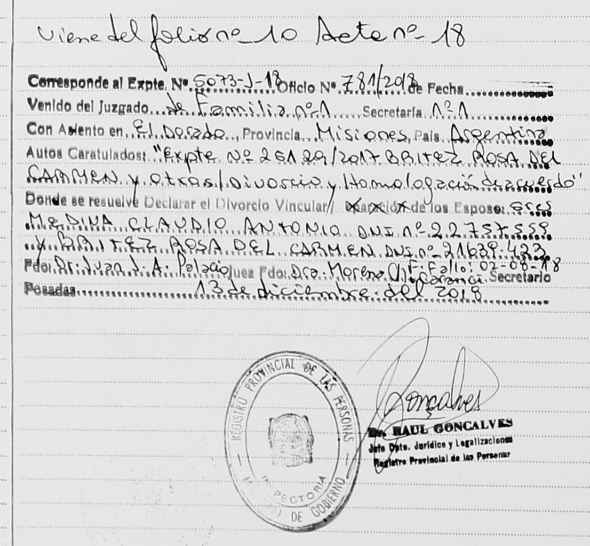 Viene del folio nº 10 Acta nº 18
Corresponde al Expte. Nº 5073-J-18 Oficio Nº 781/2018 de Fecha
Venido del Juzgado de Familia nº 1 Secretaría nº 1
Con Asiento en El Dorado, Provincia Misiones, País Argentina
Autos Caratulados: "Expte Nº 25129/2017 BRITEZ ROSA DEL
CARMEN y otros/Divorcio y Homologación de acuerdo"
Donde se resuelve Declarar el Divorcio Vincular/ de los Esposos
MEDINA CLAUDIO ANTONIO DNI nº 22.757.559
y BRITEZ ROSA DEL CARMEN DNI nº 21639.423
Fdo. Dr. Juan J. A. Palacio Juez Fdo. Dra. Moreno F. Fallo: 02-08-18
Secretario
Posadas 13 de diciembre del 2018
REGISTRO PROVINCIAL DE LAS PERSONAS
INSPECTORIA
DE GOBIERNO
Goncalves
Dr. RAUL GONCALVES
Jefe Dpto. Jurídico y Legalizaciones
Registro Provincial de las Personas